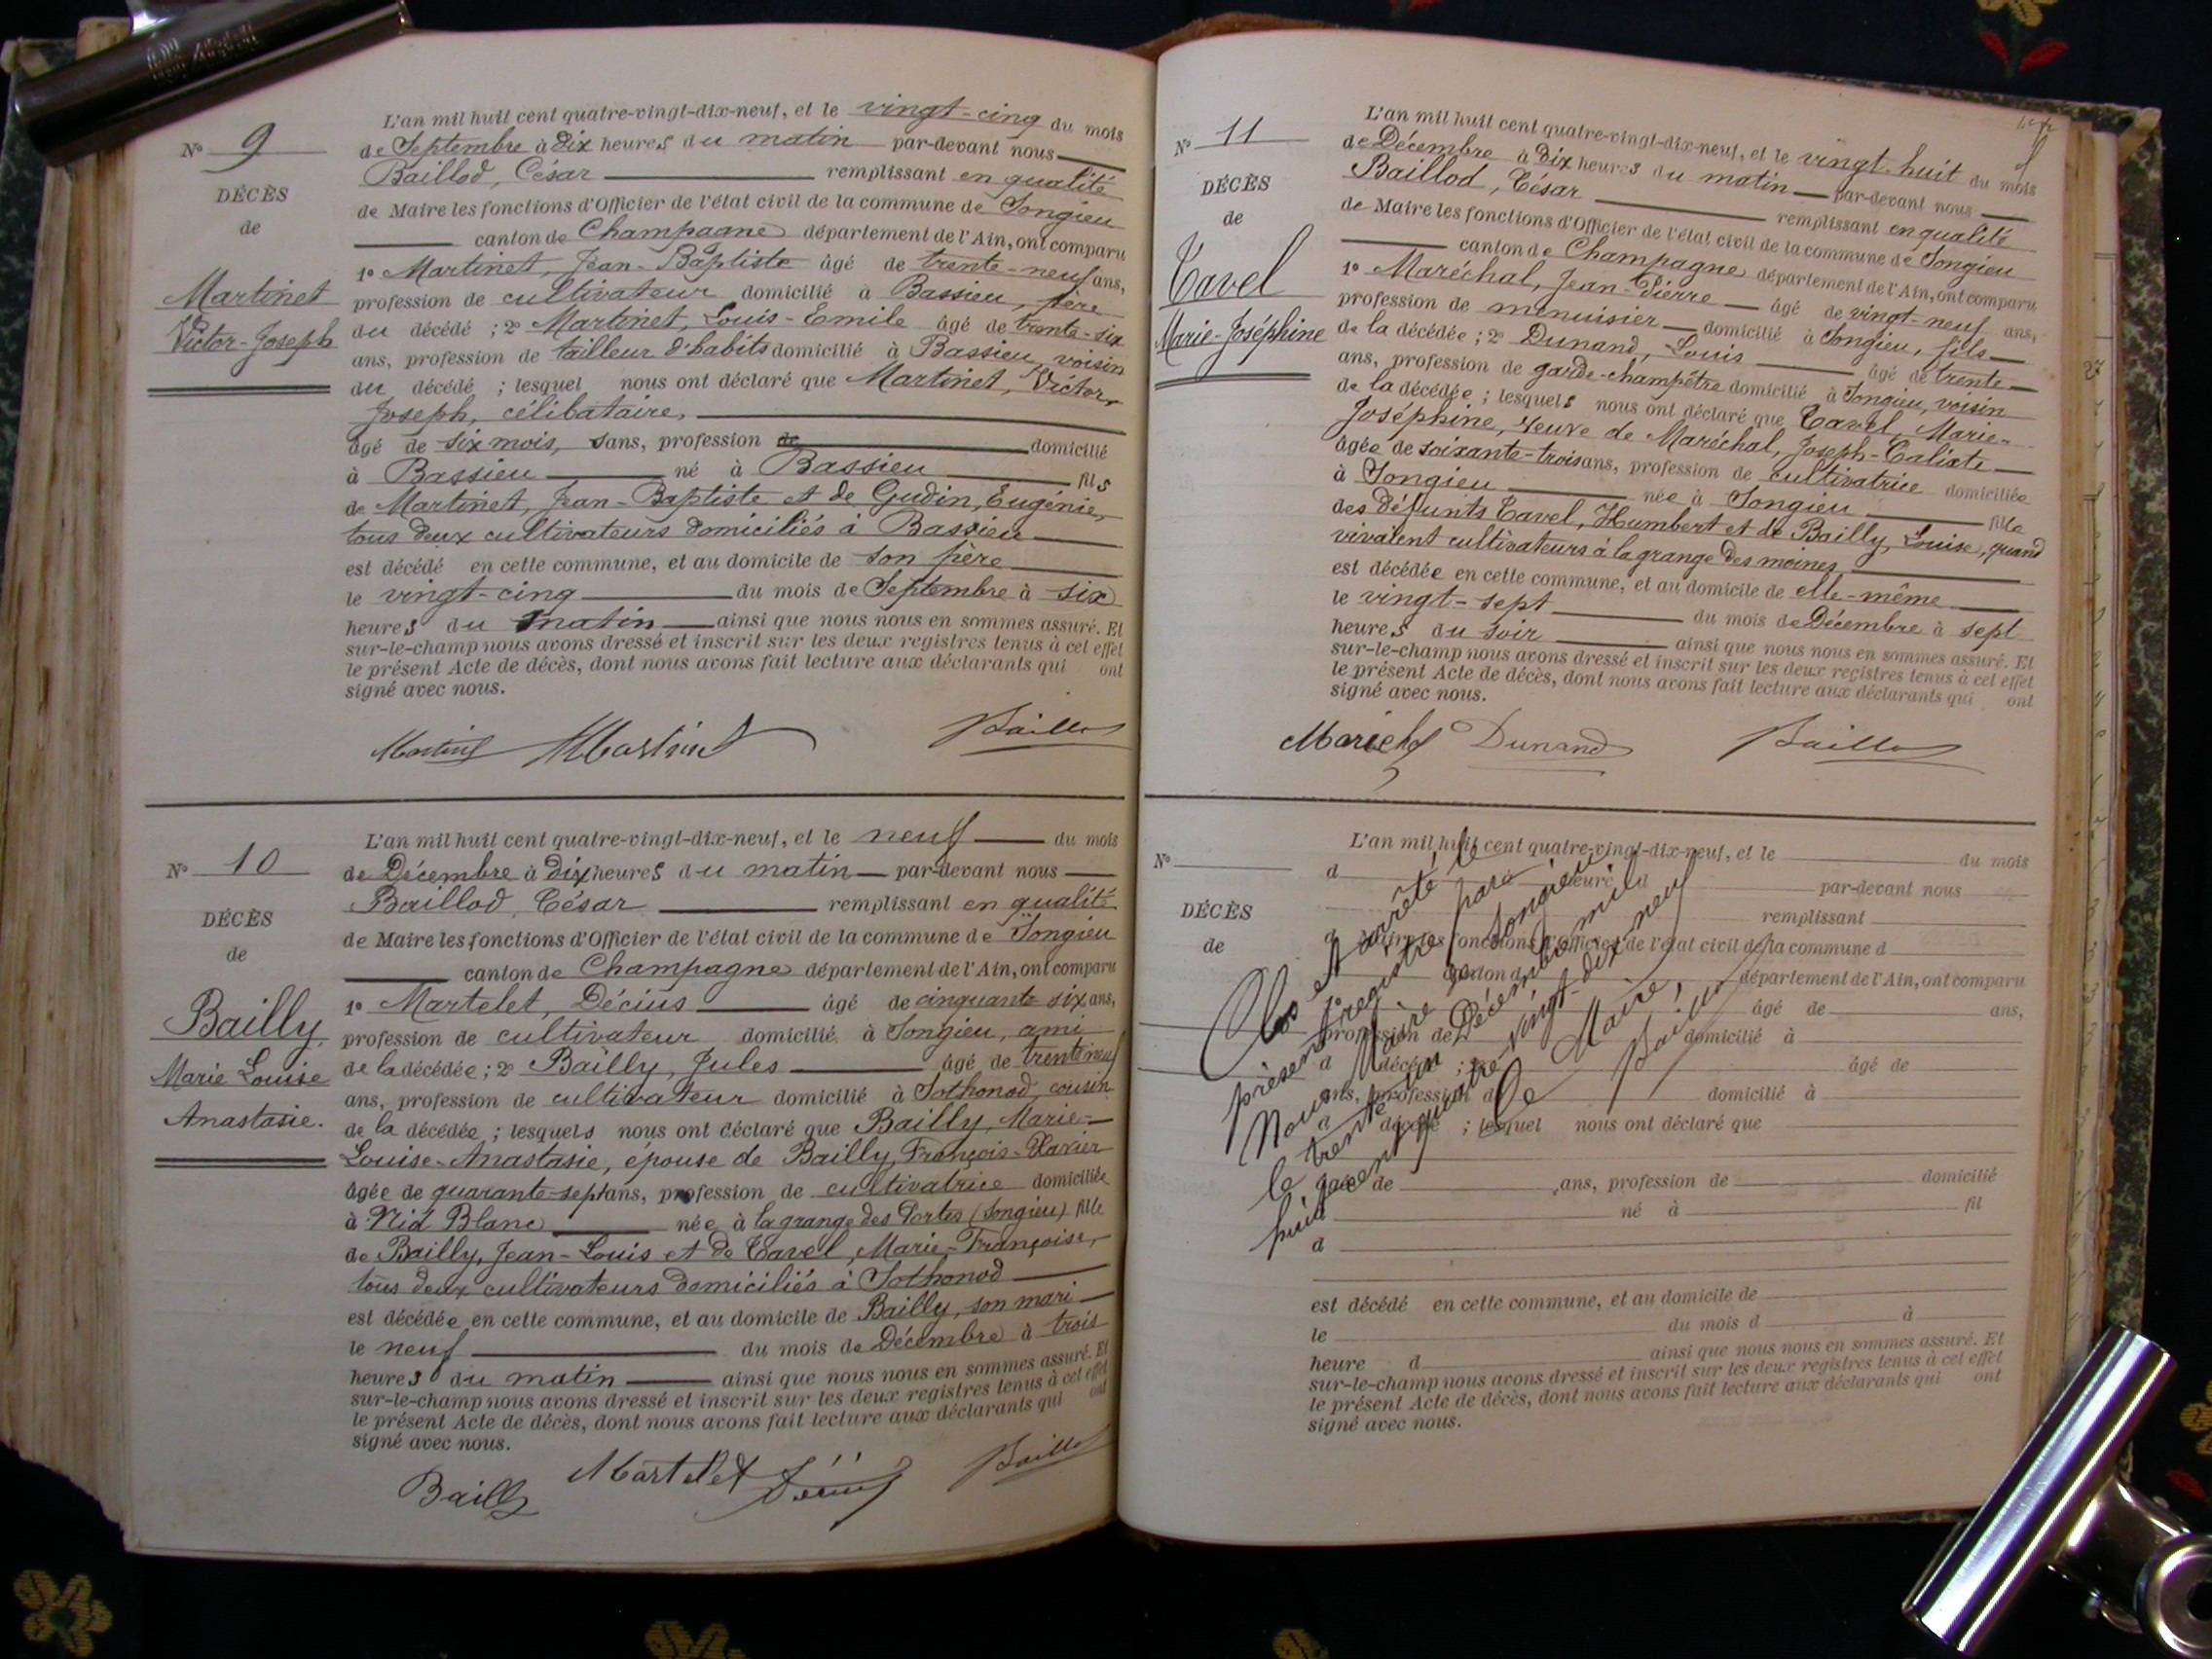 N° 9
DÉCÈS
de
Martinet
Victor-Joseph
L'an mil huit cent quatre-vingt-dix-neuf, et le vingt-cinq du mois
de Septembre à Dix heures du matin par-devant nous
Baillod, César remplissant en qualité
de Maire les fonctions d'Officier de l'état civil de la commune de Songieu
canton de Champagne département de l'Ain, ont comparu
1° Martinet, Jean-Baptiste âgé de trente-neuf ans,
profession de cultivateur domicilié à Bassieu, père
du décédé ; 2° Martinet, Louis-Emile âgé de trente-six
ans, profession de tailleur d'habits domicilié à Bassieu, voisin
du décédé ; lesquel nous ont déclaré que Martinet, Victor,
Joseph, célibataire,
âgé de six mois, sans, profession de domicilié
à Bassieu né à Bassieu fils
de Martinet, Jean-Baptiste et de Gudin, Eugénie,
tous deux cultivateurs domiciliés à Bassieu
est décédé en cette commune, et au domicile de son père
le vingt-cinq du mois de Septembre à six
heures du matin ainsi que nous nous en sommes assuré. Et
sur-le-champ nous avons dressé et inscrit sur les deux registres tenus à cet effet
le présent Acte de décès, dont nous avons fait lecture aux déclarants qui ont
signé avec nous.
Martinet Martinet Baillod
N° 10
DÉCÈS
de
Bailly,
Marie Louise
Anastasie.
L'an mil huit cent quatre-vingt-dix-neuf, et le neuf du mois
de Décembre à Dix heures du matin par-devant nous
Baillod, César remplissant en qualité
de Maire les fonctions d'Officier de l'état civil de la commune de Songieu
canton de Champagne département de l'Ain, ont comparu
1° Martelet, Décius âgé de cinquante six ans,
profession de cultivateur domicilié à Songieu, ami
de la décédée ; 2° Bailly, Jules âgé de trente neuf
ans, profession de cultivateur domicilié à Sothonod, cousin
de la décédée ; lesquels nous ont déclaré que Bailly, Marie-
Louise-Anastasie, épouse de Bailly, François-Xavier
âgée de quarante-sept ans, profession de cultivatrice domiciliée
à Nid Blanc née à la grange des Portes (Songieu) fille
de Bailly, Jean-Louis et de Tavel, Marie-Françoise,
tous deux cultivateurs domiciliés à Sothonod
est décédée en cette commune, et au domicile de Bailly, son mari
le neuf du mois de Décembre à trois
heures du matin ainsi que nous nous en sommes assuré. Et
sur-le-champ nous avons dressé et inscrit sur les deux registres tenus à cet effet
le présent Acte de décès, dont nous avons fait lecture aux déclarants qui ont
signé avec nous.
Bailly Martelet Décius Baillod
N° 11
DÉCÈS
de
Tavel
Marie-Joséphine
L'an mil huit cent quatre-vingt-dix-neuf, et le vingt-huit du mois
de Décembre à Dix heures du matin par-devant nous
Baillod, César remplissant en qualité
de Maire les fonctions d'Officier de l'état civil de la commune de Songieu
canton de Champagne département de l'Ain, ont comparu
1° Maréchal, Jean-Pierre âgé de vingt-neuf ans,
profession de menuisier domicilié à Songieu, fils
de la décédée ; 2° Dunand, Louis âgé de trente
ans, profession de garde-champêtre domicilié à Songieu, voisin
de la décédée ; lesquels nous ont déclaré que Tavel, Marie-
Joséphine, veuve de Maréchal, Joseph-Calixte
âgée de soixante-trois ans, profession de cultivatrice domiciliée
à Songieu née à Songieu fille
des défunts Tavel, Humbert et de Bailly, Louise, quand
vivaient cultivateurs à la grange des moines
est décédée en cette commune, et au domicile de elle-même
le vingt-sept du mois de Décembre à sept
heures du soir ainsi que nous nous en sommes assuré. Et
sur-le-champ nous avons dressé et inscrit sur les deux registres tenus à cet effet
le présent Acte de décès, dont nous avons fait lecture aux déclarants qui ont
signé avec nous.
Maréchal Dunand Baillod
N°
DÉCÈS
de
L'an mil huit cent quatre-vingt-dix-neuf, et le du mois
d heure d par-devant nous
remplissant
d Maire les fonctions d'Officier de l'état civil de la commune d
canton d département de l'Ain, ont comparu
âgé de ans,
profession de domicilié à
d décédé ; 2° âgé de
ans, profession d domicilié à
d décédé ; lesquel nous ont déclaré que
âgé de ans, profession de domicilié
né à fil
d
est décédé en cette commune, et au domicile de
le du mois d à
heure d ainsi que nous nous en sommes assuré. Et
sur-le-champ nous avons dressé et inscrit sur les deux registres tenus à cet effet
le présent Acte de décès, dont nous avons fait lecture aux déclarants qui ont
signé avec nous.
Clos et arrêté le
présent registre par
Nous Maire de Songieu
le trente-un Décembre mil
huit cent quatre-vingt-dix-neuf
Le Maire,
Baillod